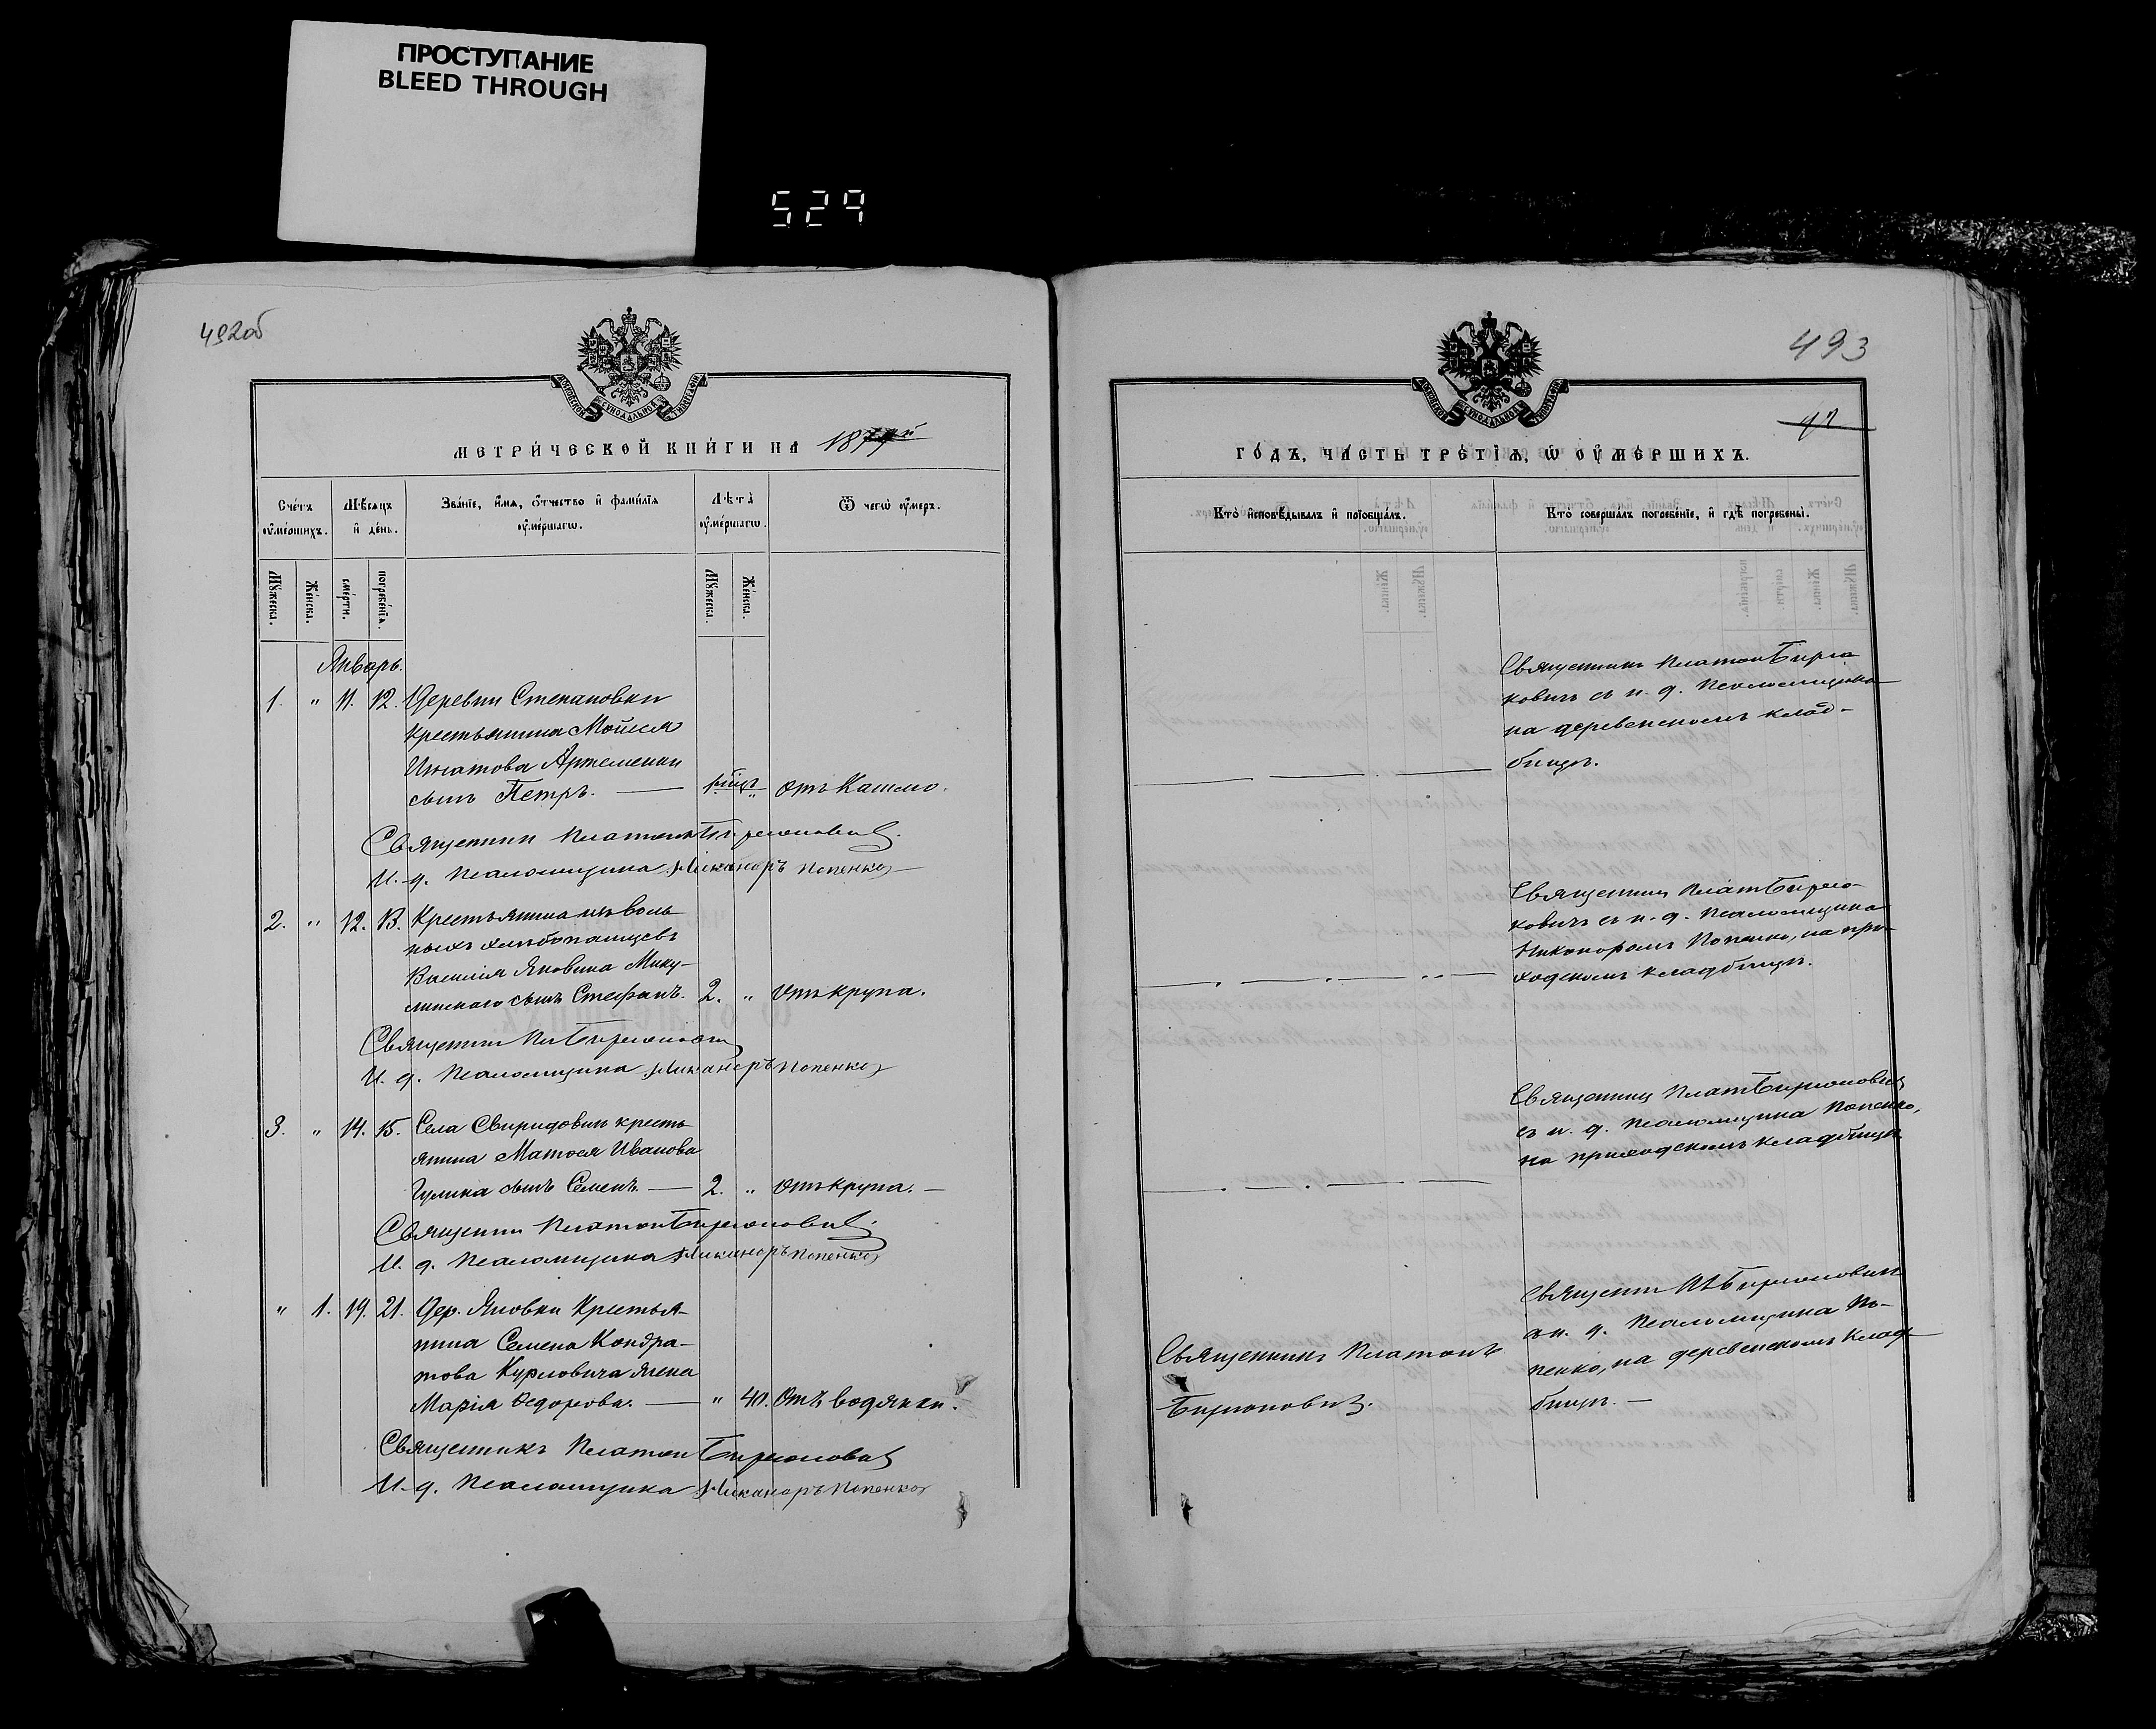 ПРОСТУПАНИЕ
BLEED THROUGH
529
492об
МОСКОВСКОЙ СѴНОДАЛЬНОЙ ТИПОГРАФІИ
МЕТРИ́ЧЕСКОЙ КНИ́ГИ НА 187
Сче́тъ ᲂу҆ме́ршихъ.
Мѣ́сяцъ и҆ де́нь.
Зва́нїе, и҆́мѧ, ѻ҆́тчество и҆ фами́лїѧ ᲂу҆ме́ршагѡ.
Лѣ́та ᲂу҆ме́ршагѡ.
Ѿ чегѡ̀ ᲂу҆́меръ.
Мꙋ́жеска.
Же́нска.
сме́рти.
погребе́нїѧ.
Мꙋ́жеска.
Же́нска.
Январь.
1. " 11. 12. Деревни Степановки
крестьянина Мойсея
Игнатова Артеменки
сынъ Петръ. — " отъ Кашлю.
Священникъ Платонъ Бирюковичъ
И. д. Псаломщика Никаноръ Попенко
2. " 12. 13. Крестьянина изъ воль
ныхъ хлѣбопашцевъ
Василія Яковина Мику-
линскаго сынъ Стефанъ. 2. " Отъ крупа.
Священникъ Пл Бирюковичъ
И. д. Псаломщика Никаноръ Попенко
3. " 14. 15. Села Свиридовки кресть
янина Матѳея Иванова
Гулика сынъ Семенъ. — 2. " Отъ крупа. —
Священникъ Платонъ Бирюковичъ
И. д. Псаломщика Никаноръ Попенко
" 1. 19. 21. Дер. Яновки Крестья-
нина Семена Кондра-
това Курловича жена
Марія Ѳедорова. — " 40. Отъ водянки.
Священникъ Платонъ Бирюковичъ
И. д. Псаломщика Никаноръ Попенко
493
МОСКОВСКОЙ СѴНОДАЛЬНОЙ ТИПОГРАФІИ
ГО́ДЪ, ЧА́СТЬ ТРЕ́ТЇѦ, Ѡ҆ ОУ҆МЕ́РШИХЪ.
Кто̀ и҆сповѣ́дывалъ и҆ прїобща́лъ.
Кто̀ соверша́лъ погребе́нїе, и҆ гдѣ̀ погребены̀.
Священникъ Платонъ Бирю
ковичъ съ и. д. Псаломщика
на деревенскомъ клад-
бищѣ.
Священникъ Плат Бирю-
ковичъ съ и. д. Псаломщика
Никаноромъ Попенко, на при-
ходскомъ кладбищѣ.
Священникъ Плат Бирюковичъ
съ и. д. Псаломщика Попенко,
на приходскомъ кладбищѣ
Священникъ Платонъ
Бирюковичъ.
Священникъ Пл Бирюковичъ
съ и. д. Псаломщика По-
пенко, на деревенскомъ клад-
бищѣ. —